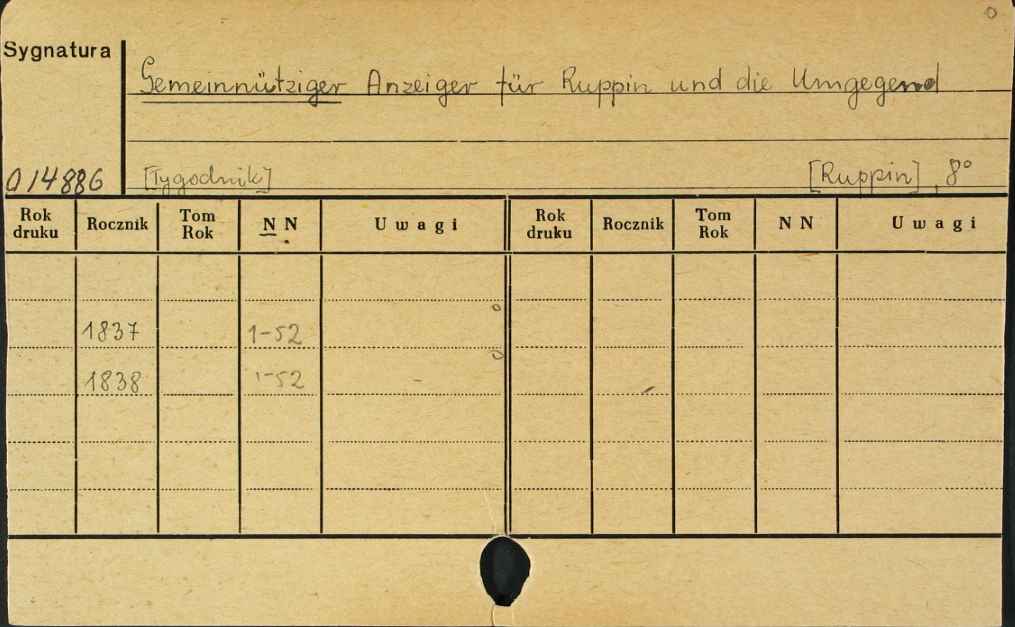 Sygnatura
Gemeinnütziger Anzeiger für Ruppin und die Umgegend
014886 [Tygodnik] [Ruppin], 8°
Rok druku Rocznik Tom Rok N N Uwagi Rok druku Rocznik Tom Rok N N Uwagi
1837 1-52
1838 1-52